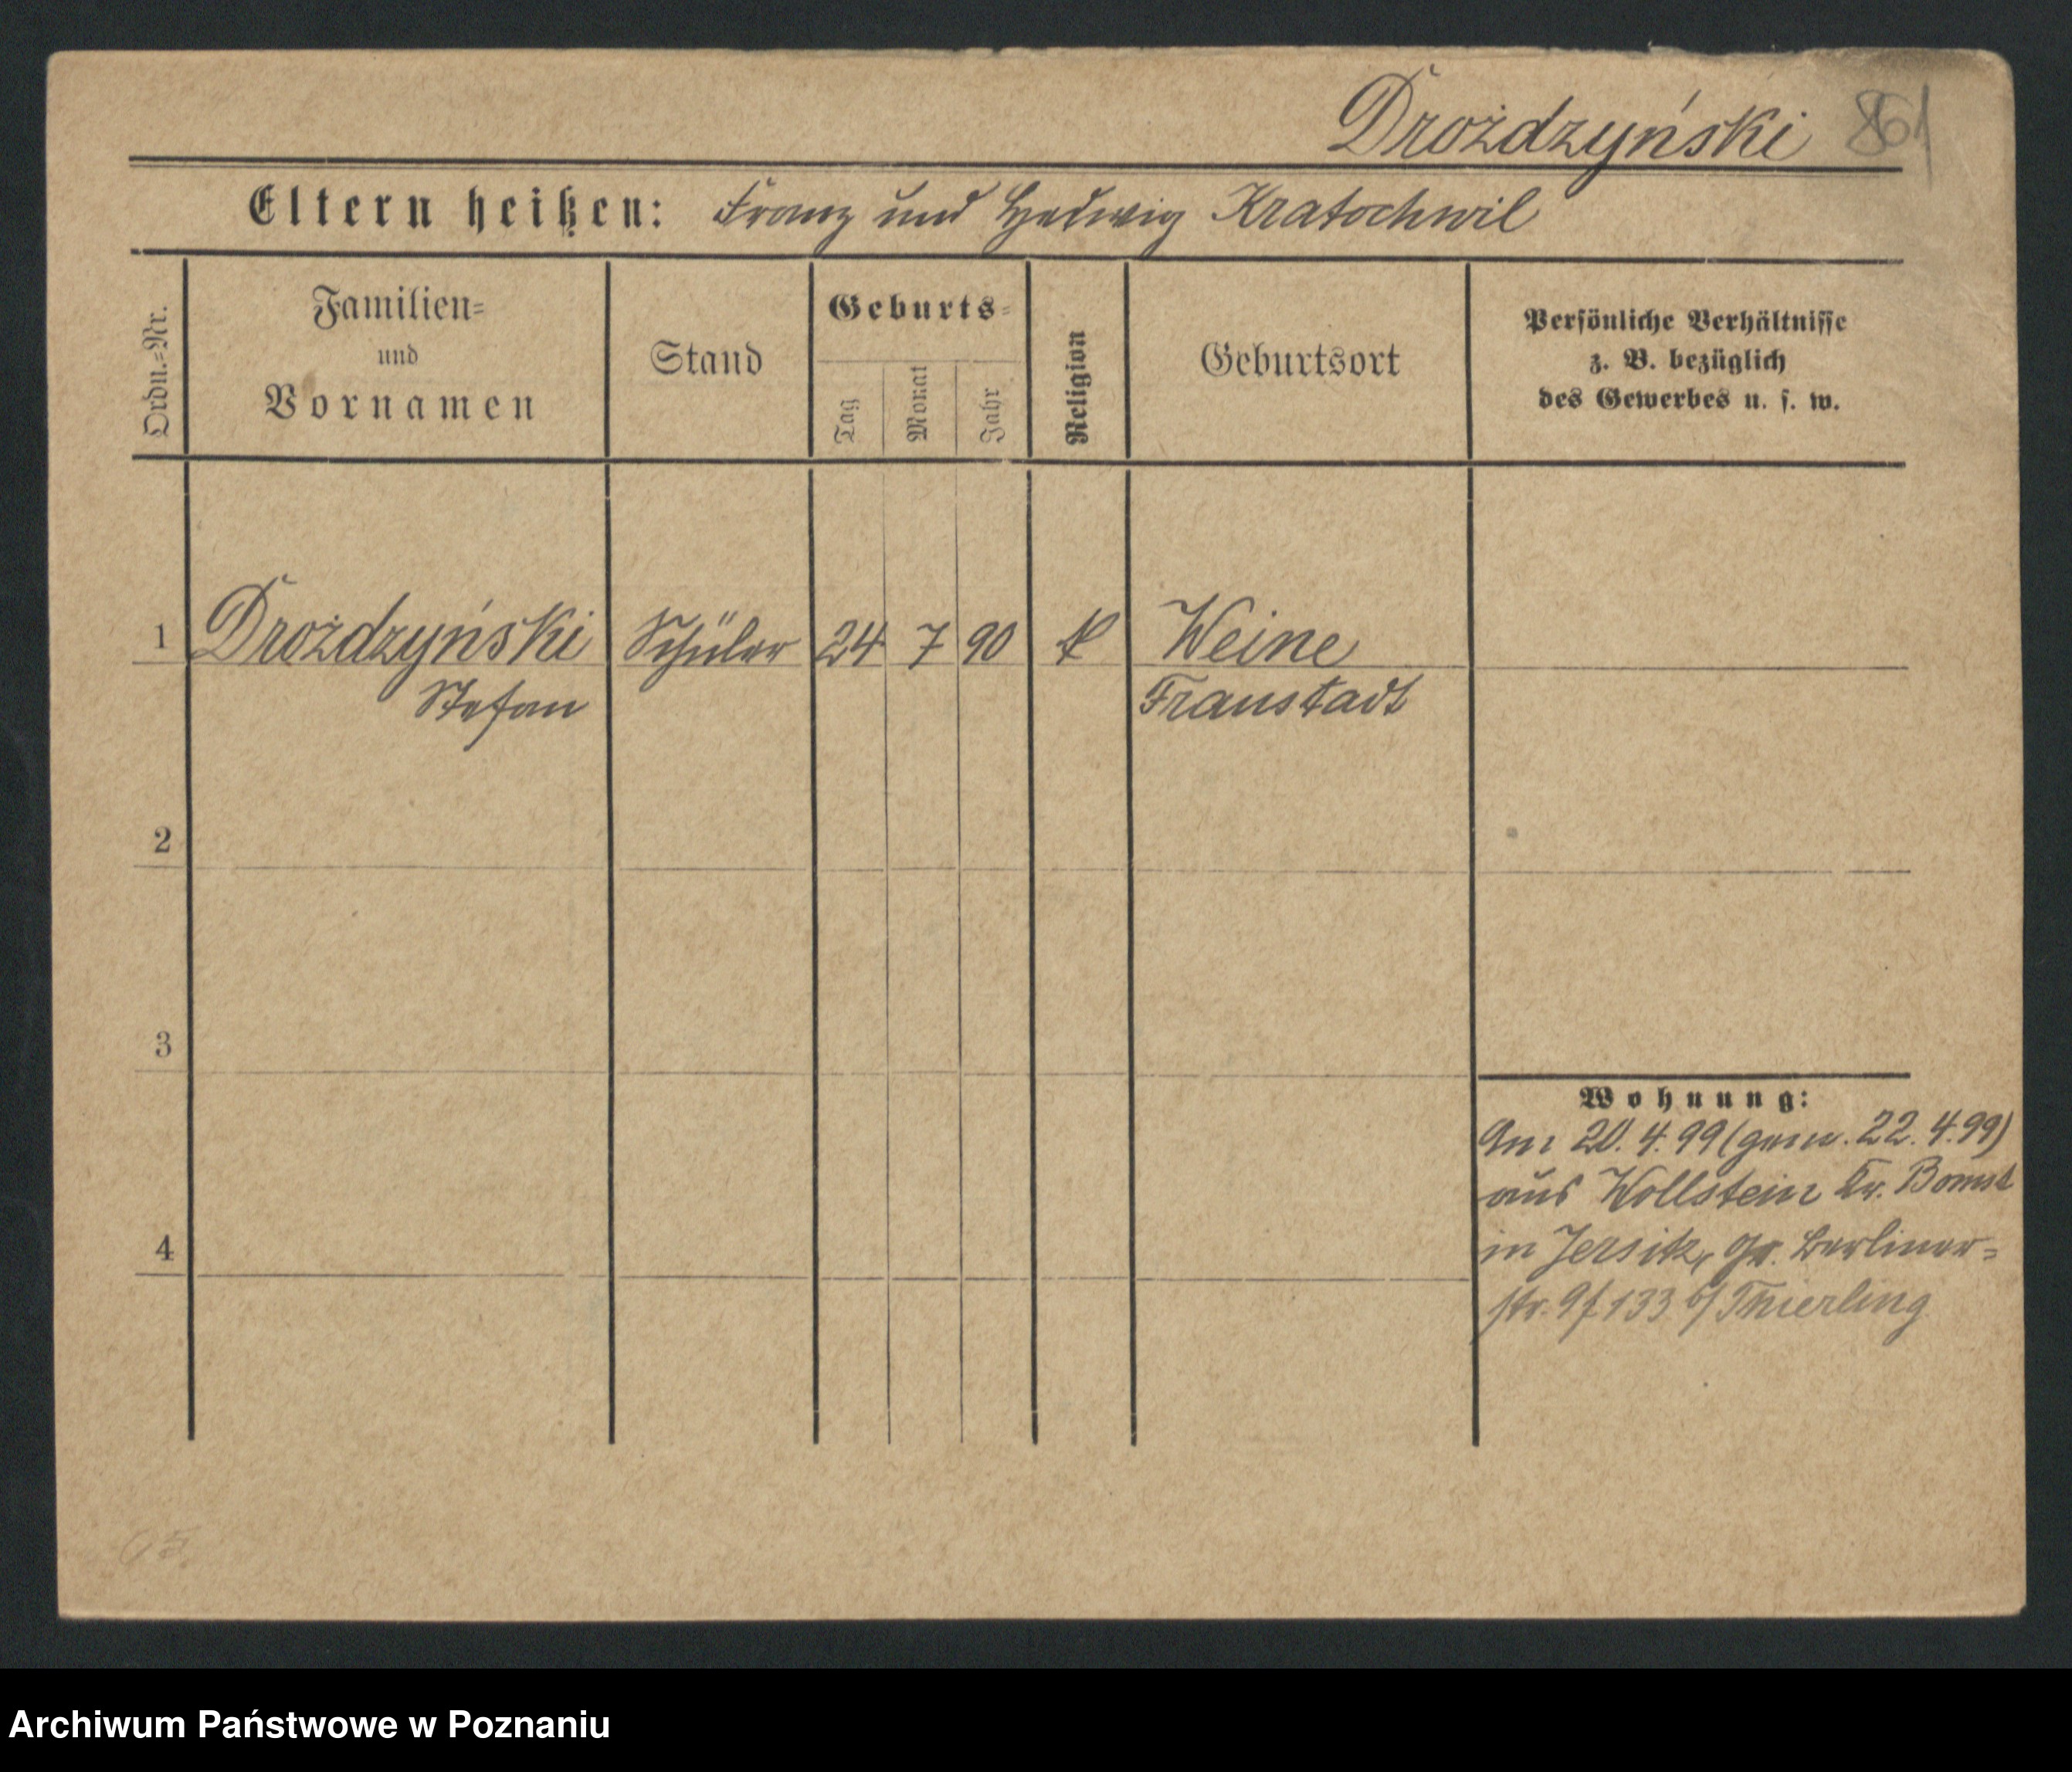 Drożdzyński 861
Eltern heißen: Franz und Hedwig Kratochwil
Ordn.=Nr.
Familien=
und
Vornamen
Stand
Geburts=
Tag
Monat
Jahr
Religion
Geburtsort
Persönliche Verhältnisse
z. B. bezüglich
des Gewerbes u. s. w.
1 Drożdzyński Schüler 24 7 90 k Weine
Stefan Fraustadt
2
3
4
Wohnung:
Am 20.4.99 (gem. 22.4.99)
aus Wollstein Kr. Bomst
in Jersitz, Gr. Berliner=
str. 133 b/Thierling
65
Archiwum Państwowe w Poznaniu